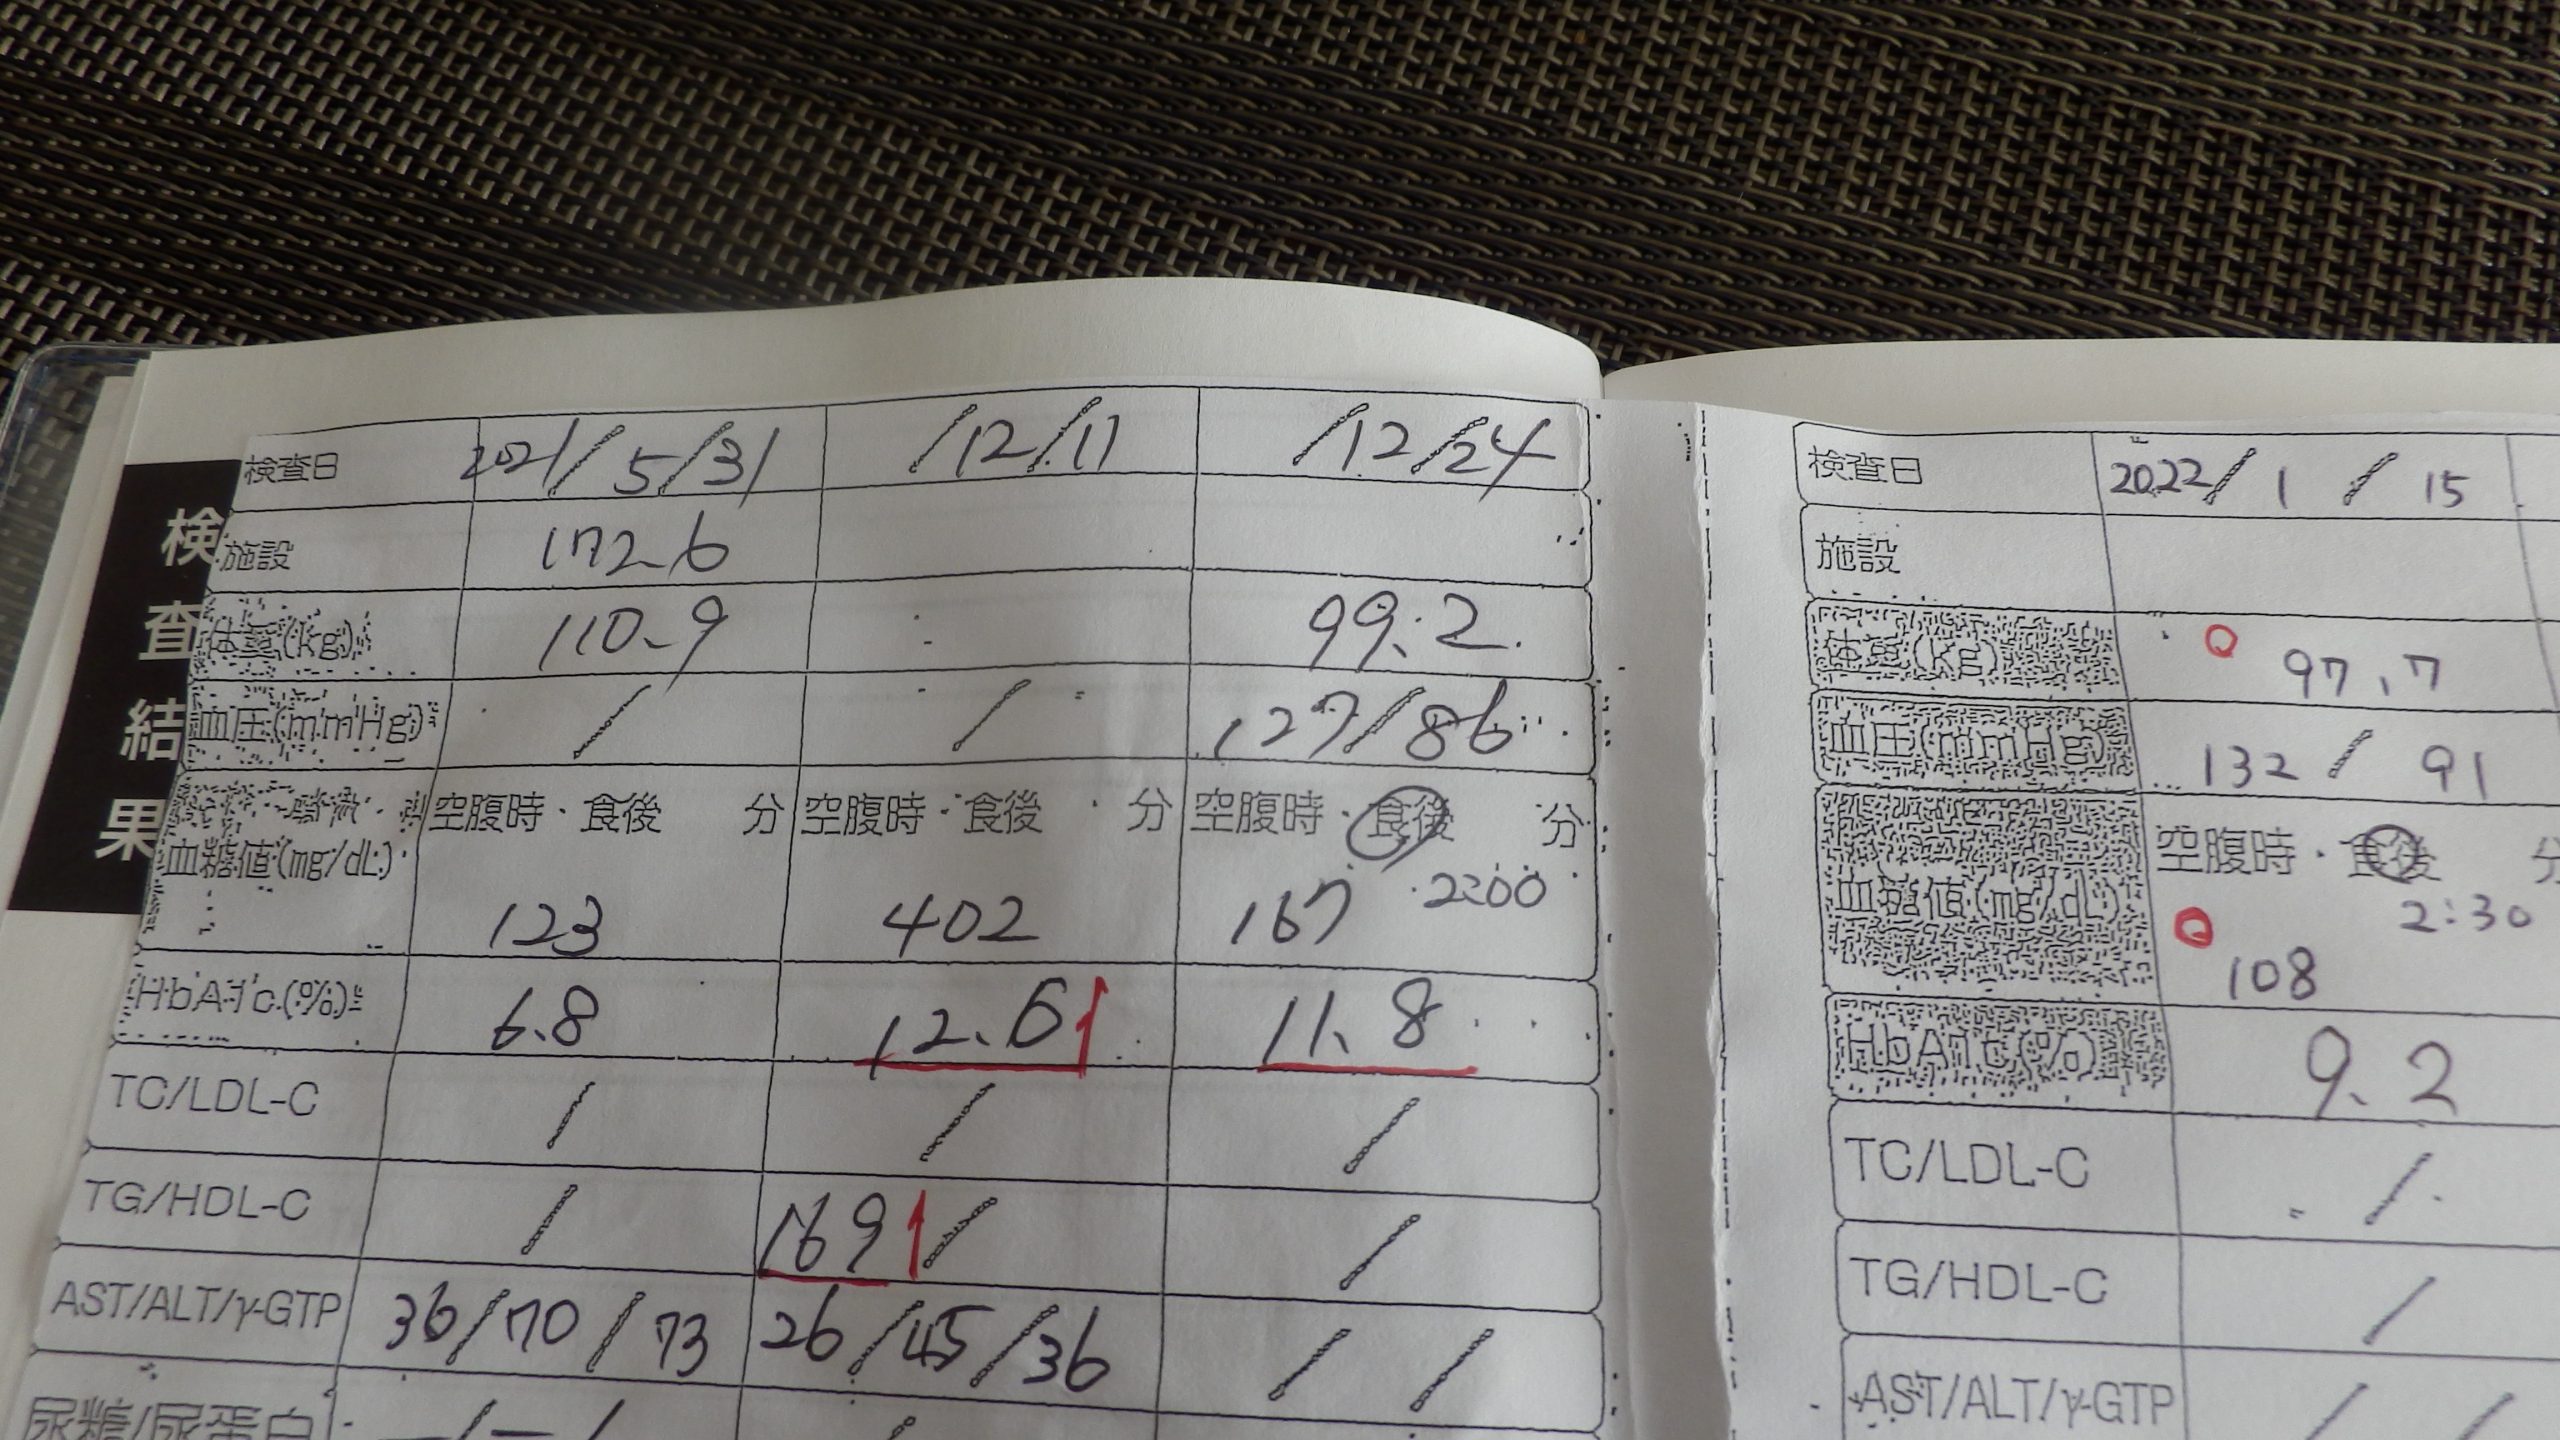 検査結果
検査日 2021/5/31 /12/11 /12/24
施設 172.6
体重(kg) 110.9 99.2
血圧(mmHg) / / 127/86
空腹時・食後 分 空腹時・食後 分 空腹時・食後 分
血糖値(mg/dL) 123 402 167 2:00
HbA1c(%) 6.8 12.6↑ 11.8
TC/LDL-C / / /
TG/HDL-C / 169↑/ /
AST/ALT/γ-GTP 36/70/73 26/45/36 / /
尿糖/尿蛋白
検査日 2022/1/15
施設
体重(kg) 97.7
血圧(mmHg) 132/91
空腹時・食後 分
血糖値(mg/dL) 2:30
108
HbA1c(%) 9.2
TC/LDL-C /
TG/HDL-C /
AST/ALT/γ-GTP / /